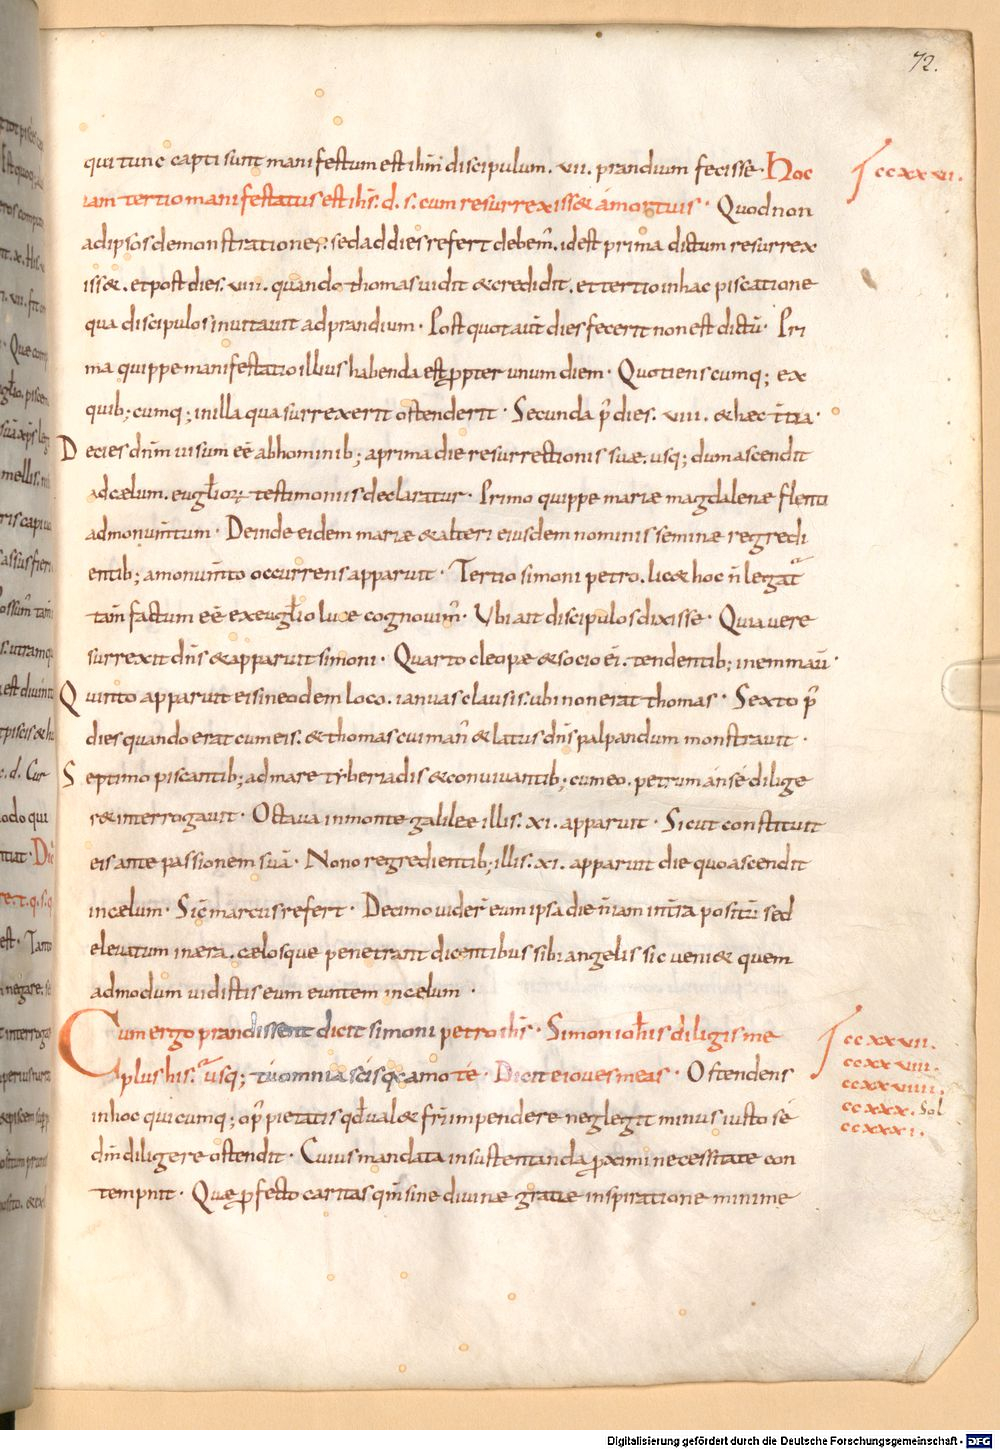 72.
qui tunc capti sunt manifestum est ihm̄ discipulum. vii. prandium fecisse· Hoc
iam tertio manifestatus est ihs̄. d. s. cum resurrexiss& amortuis· Quod non
ad ipsos demonstrationes. sed ad dies refert debem̄. id est prima dictum resurrex
iss&. et post dies. viii. quando thomas uidit & credidit. et tertio in hac piscatione
qua discipulos inuitauit ad prandium· Post quot aut̄ dies fecerit non est dictū· Pri
ma quippe manifestatio illius habenda est ppter unum diem· Quotienscumq; ex
quib; cumq; in illa qua surrexerit ostenderit· Secunda p̄ dies. viii. & haec t̄tia·
Decies dnm̄ uisum eē ab hominib; a prima die resurrectionis suae. usq; dum ascendit
ad caelum. eugłior testimoniis declaratur· Primo quippe mariae magdalenae flenti
ad monum̄tum· Deinde eidem mariae & alteri eiusdem nominis feminae regredi
entib; a monum̄to occurrens apparuit· Tertio simoni petro. lic& hoc n̄ legat̄
tam̄ factum eē ex eugłio luce cognouim̄· Ubi ait discipulos dixisse· Quia uere
surrexit dn̄s & apparuit simoni· Quarto cleope & socio ei. tendentib; in emmau·
Quinto apparuit eis in eodem loco. ianuas clausis. ubi non erat thomas· Sexto p̄
dies quando erat cum eis. & thomas cui man̄ & latus dn̄s palpandum monstrauit·
Septimo piscantib; ad mare tyberiadis & conuiuantib; cum eo. petrum an se dilige
r& interrogauit· Octaua in monte galileae illis. xi. apparuit· Sicut constituit
eis ante passionem suā· Nono regredientib; illis. xi. apparuit die quo ascendit
in caelum· Sic̄ marcus refert· Decimo uider̄ eum ipsa die n̄ iam int̄ra positū sed
eleuatum in aera. caelosque penetrant dicentibus sibi angelis sic ueni& quem
admodum uidistis eum euntem in caelum·
Cum ergo prandissent dicit simoni petro ihs̄· Simon iohīs diligis me
plus his. usq; tu omnia scis q̄a amo te· Dicit ei oues meas· Ostendens
in hoc quicumq; op̄ pietatis qd ual& frī impendere neglegit minus iusto se
dn̄m diligere ostendit· Cuius mandata in sustentanda pximi necessitate con
tempnit· Quae pfecto caritas qm̄ sine diuinae gratiae inspiratione minime
ccxxvi.
ccxxvii.
ccxxviii.
ccxxviiii.
ccxxx. Sol
ccxxxi.
Digitalisierung gefördert durch die Deutsche Forschungsgemeinschaft - DFG